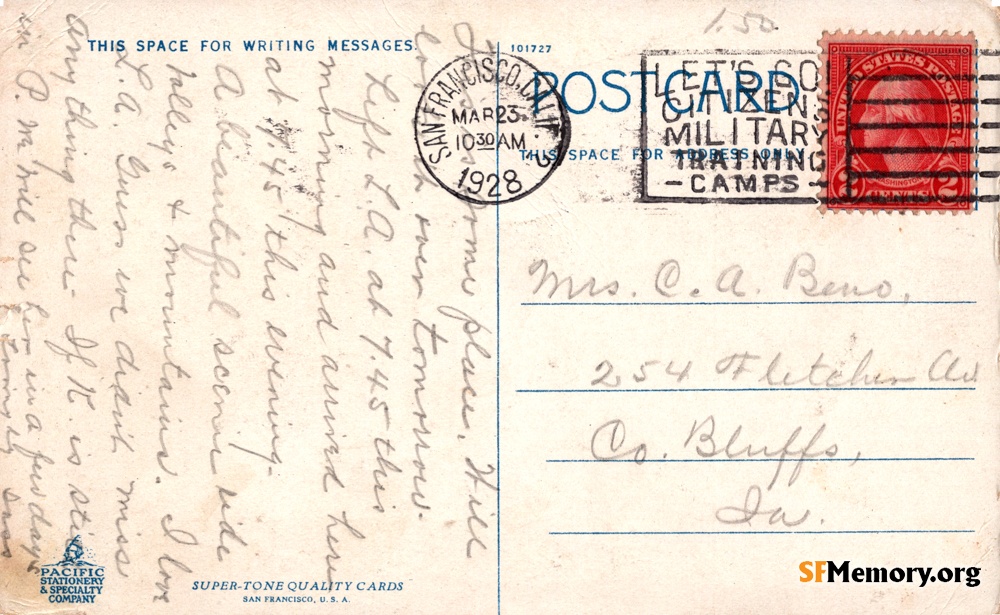 THIS SPACE FOR WRITING MESSAGES.
This is some place. Will
look it over tomorrow.
Left L.A. at 7.45 this
morning and arrived here
at 7.45 this evening.
A beautiful scenic ride
valleys & mountains. I love
L.A. Guess we didn't miss
any thing there - If K. is still
in P. M.
see her in a few days
PACIFIC
STATIONERY
& SPECIALTY
COMPANY
SUPER-TONE QUALITY CARDS
SAN FRANCISCO, U. S. A.
101727
1.50
POST CARD
THIS SPACE FOR ADDRESS ONLY
SAN FRANCISCO, CALIF.
MAR 23
10 30 AM
1928
LET'S GO
CITIZENS
MILITARY
TRAINING
- CAMPS -
UNITED STATES POSTAGE
WASHINGTON
2 CENTS 2
Mrs. C. A. Beno,
254 Fletcher Av
Co. Bluffs,
Ia.
SFMemory.org